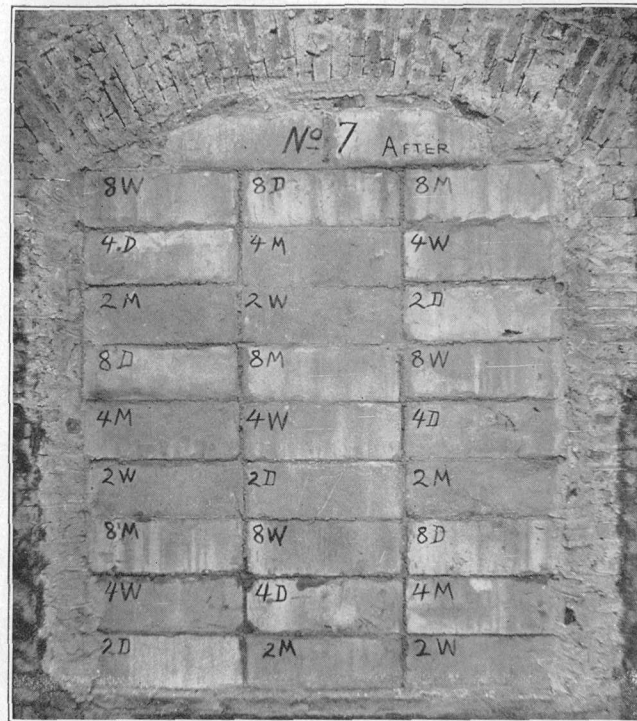 No 7 AFTER
8W 8D 8M
4.D 4M 4W
2M 2W 2D
8D 8M 8W
4M 4W 4D
2W 2D 2M
8M 8W 8D
4W 4D 4M
2D 2M 2W